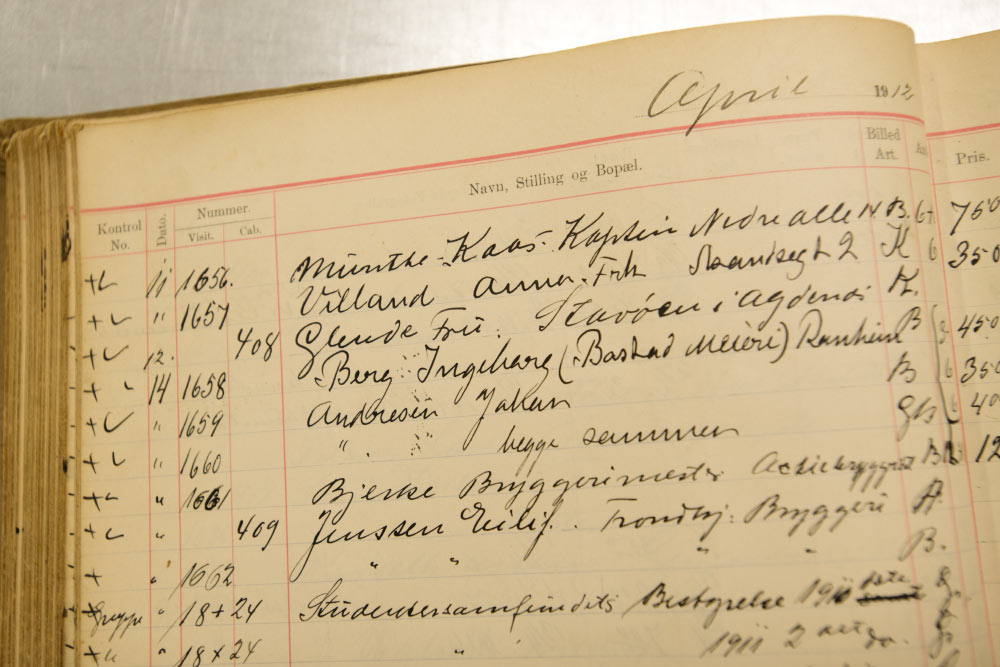 April 1912
Kontrol No. Dato. Nummer. Visit. Cab. Navn, Stilling og Bopæl. Billed Art. Pris.
11 1656. Munthe-Kaas- Kaptein Nedre alle 14 B. 6 750
" 1657 Villand Anna. Frk 2 K 6 350
12. 408 Glende Fru. Stavöen i Agdenes K.
14 1658 Berg Ingeborg (Bastad Meieri) Ranheim B 3 450
" 1659 Andresen Johan B 6 350
" 1660 " begge sammen 6 40
" 1661 Bjerke Bryggerimester Actiebryggeri B 12
" 409 Jenssen Eilif. Trondhj. Bryggeri A
" 1662 " " " " B.
Gruppe " 18+24 Studentersamfundets Bestyrelse
" 18×24 " 1911 2